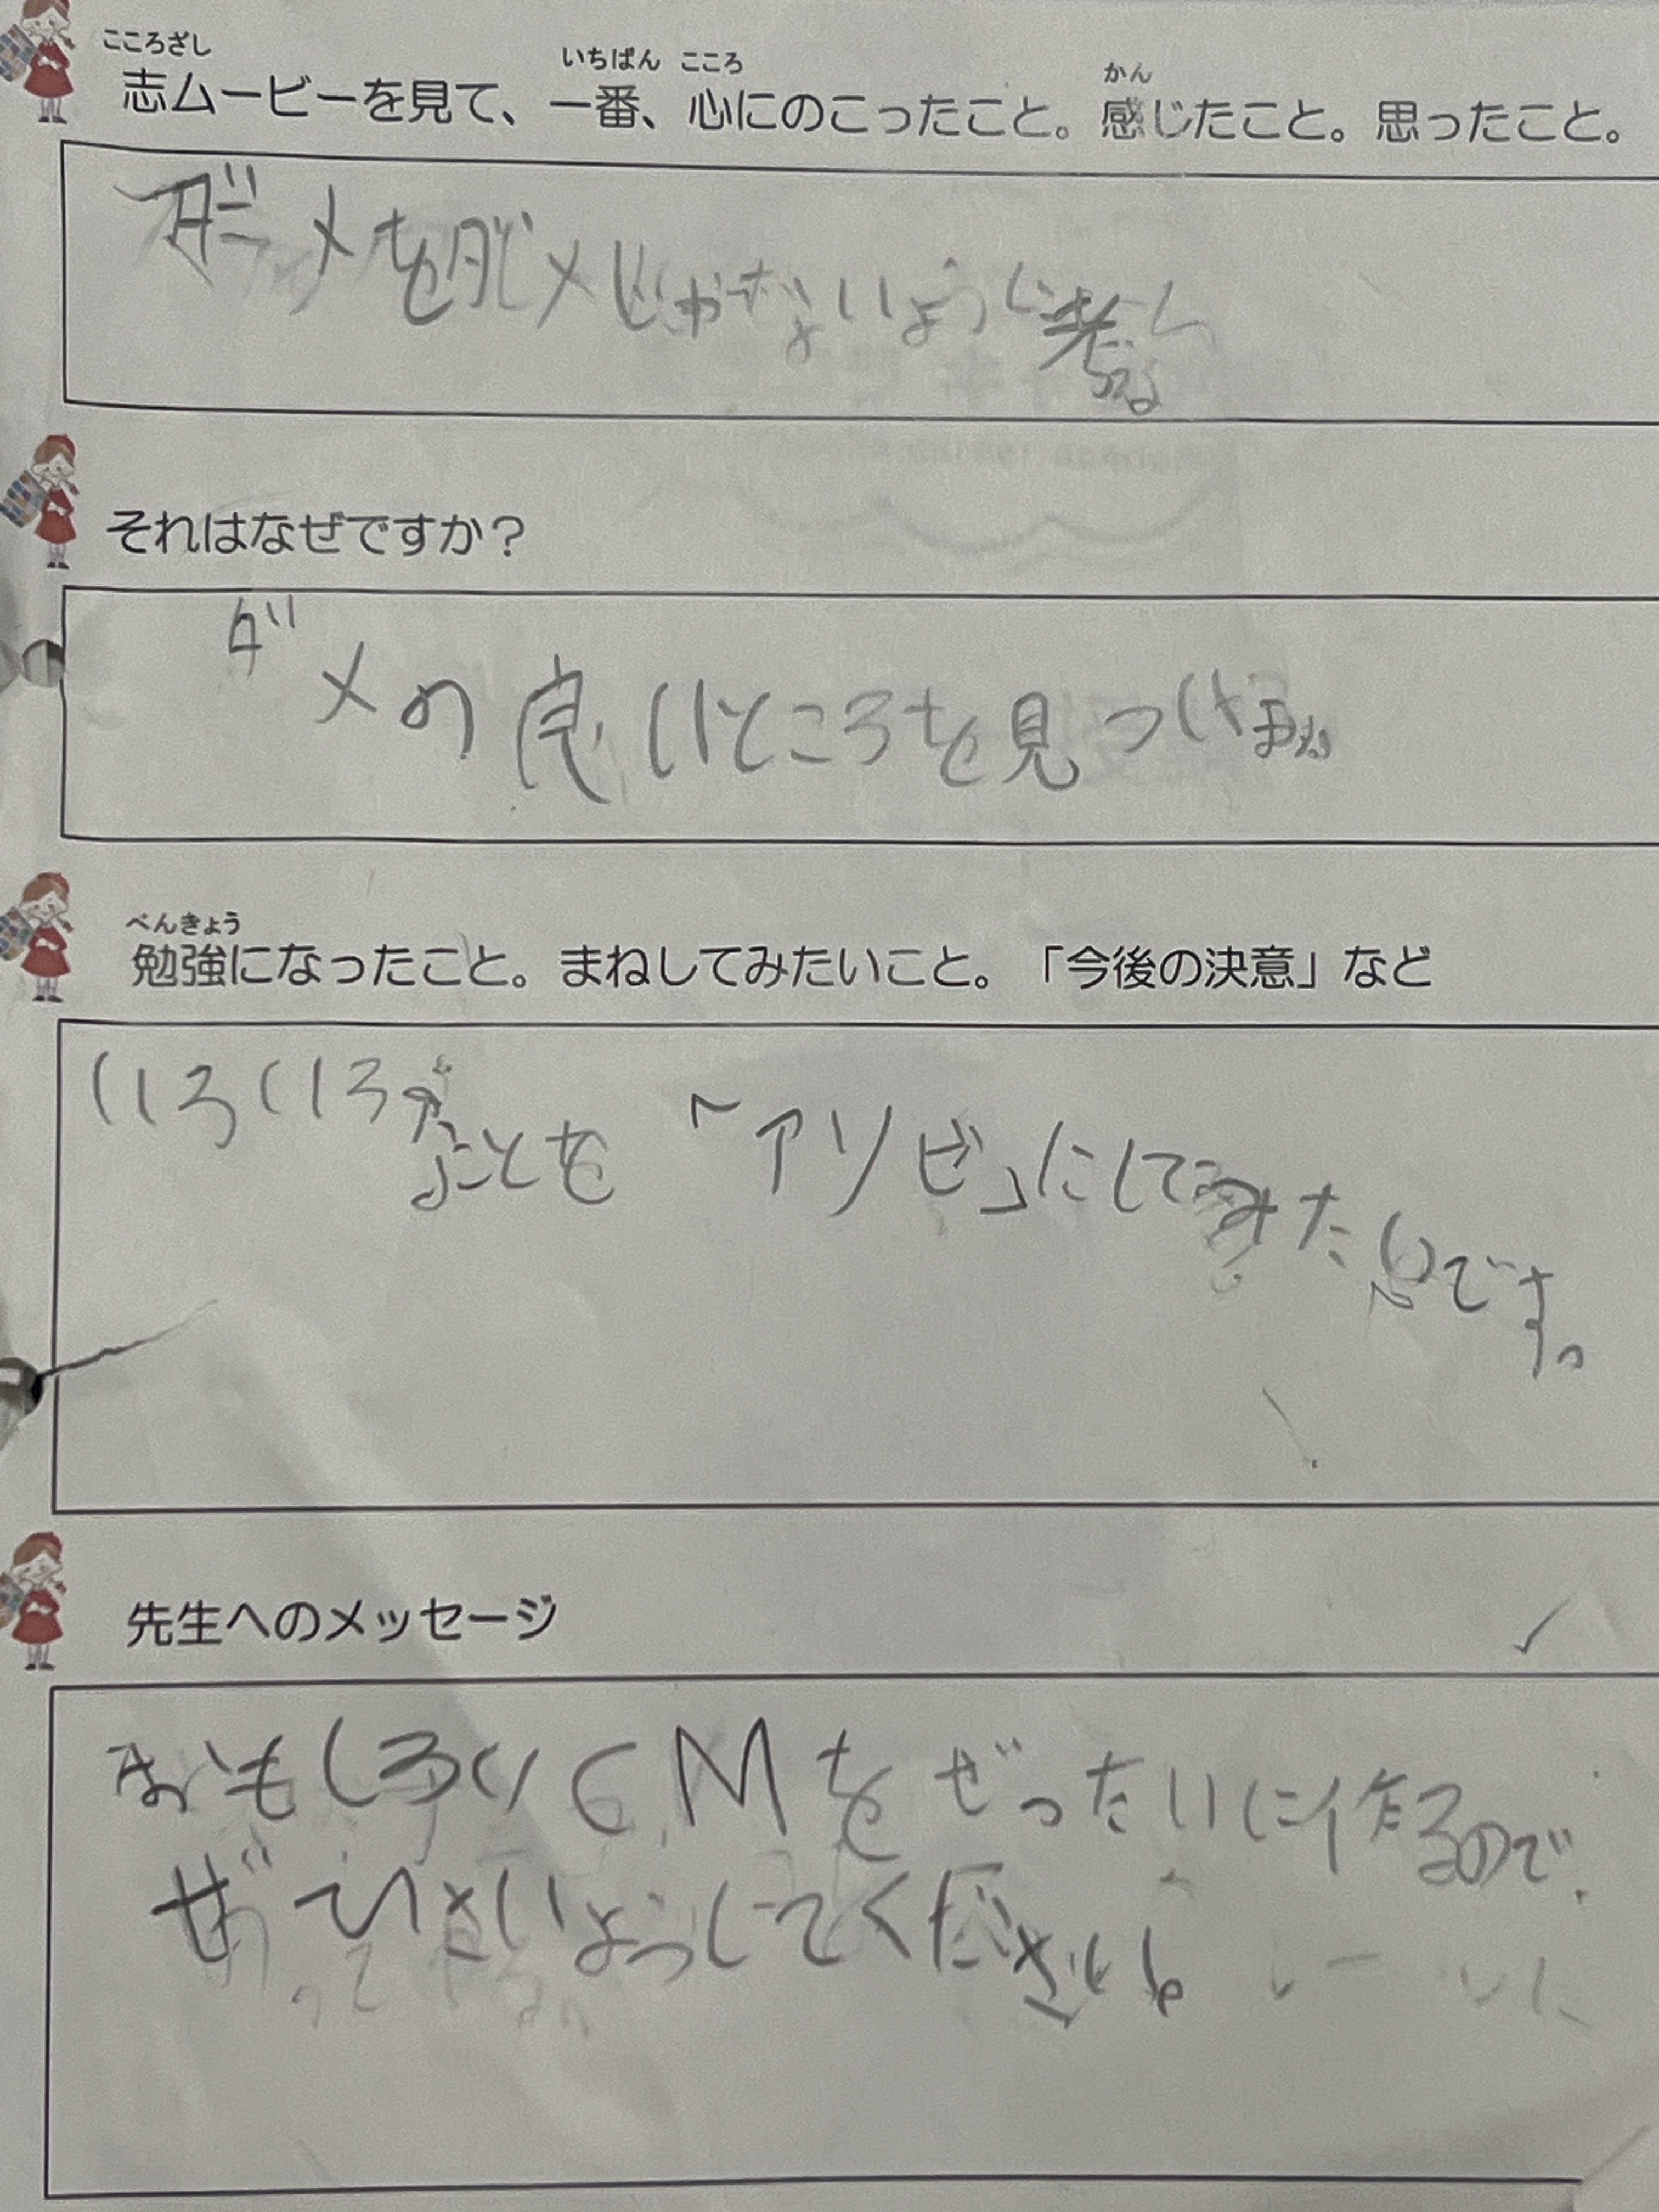 こころざし
いちばん こころ
かん
志ムービーを見て、一番、心にのこったこと。感じたこと。思ったこと。
ダメをダメじゃないように考える
それはなぜですか?
ダメの良いところを見つける
べんきょう
勉強になったこと。まねしてみたいこと。「今後の決意」など
いろいろなことを「アソビ」にしてみたいです。
先生へのメッセージ
おもしろいCMをぜったいに作るので、
ぜひさいようしてください。